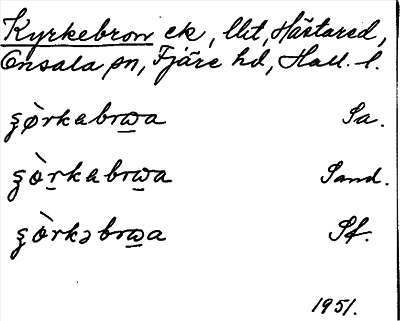 Kyrkebron ek, llit, Hästared,
Onsala sn, Fjäre hd, Hall. l.
ȿø̀rkabrɯa Sa.
ȿò̱rkabrɯa Sand.
ȿòrkəbrɯa Sf.
1951.